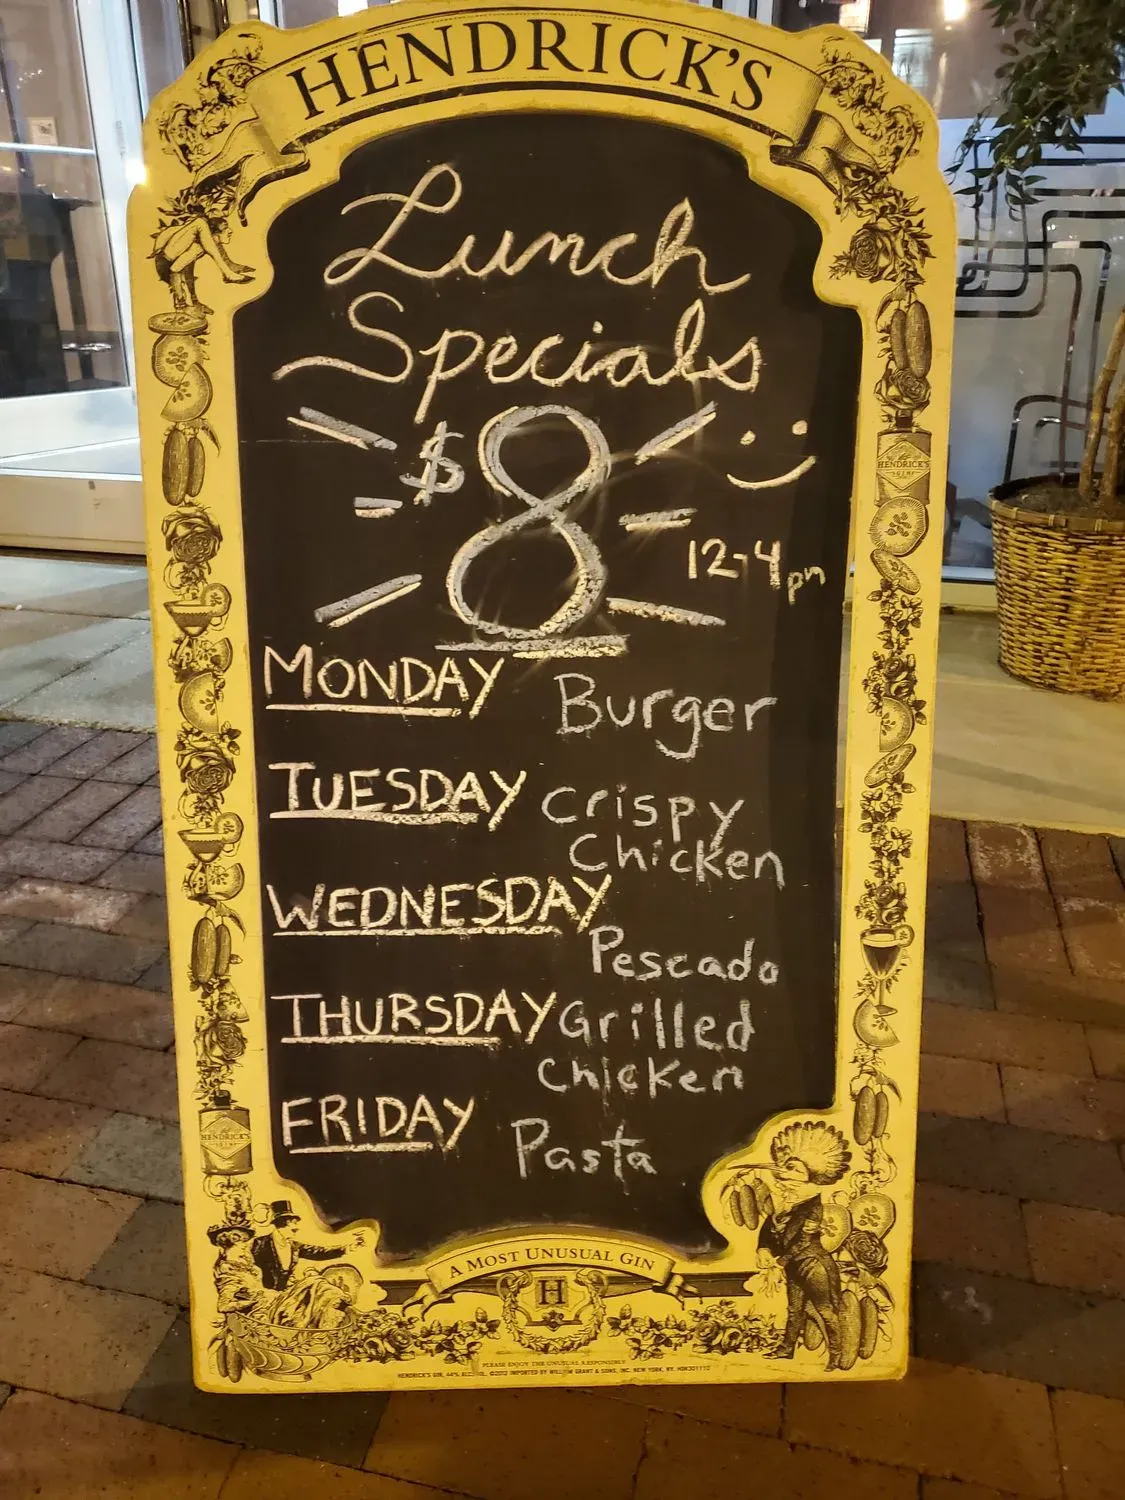 HENDRICK'S
Lunch
Specials
$8
12-4pm
MONDAY Burger
TUESDAY Crispy
Chicken
WEDNESDAY
Pescado
THURSDAY Grilled
Chicken
FRIDAY Pasta
HENDRICK'S
GIN
HENDRICK'S
GIN
A MOST UNUSUAL GIN
H
PLEASE ENJOY THE UNUSUAL RESPONSIBLY
HENDRICK'S GIN, 44% ALC./VOL. ©2012 IMPORTED BY WILLIAM GRANT & SONS, INC. NEW YORK, NY.